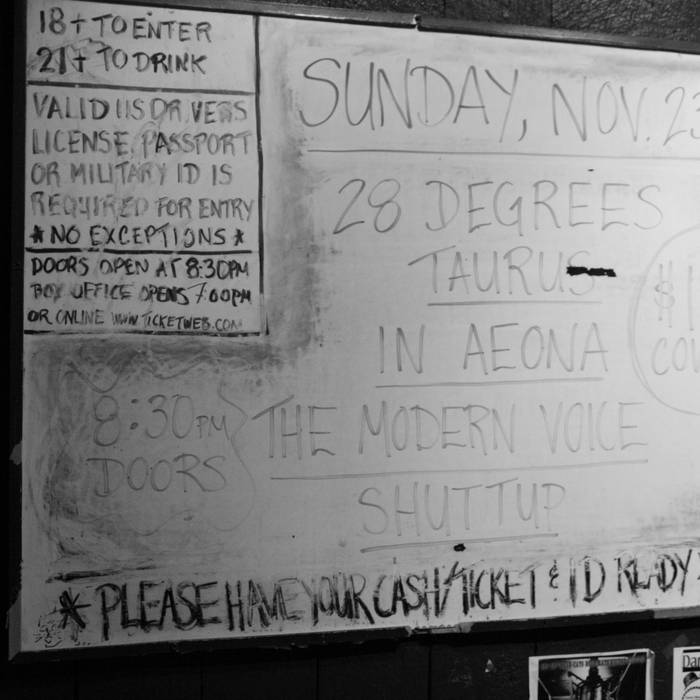 18+ TO ENTER
21+ TO DRINK
VALID US DRIVERS
LICENSE, PASSPORT
OR MILITARY ID IS
REQUIRED FOR ENTRY
* NO EXCEPTIONS *
DOORS OPEN AT 8:30PM
BOX OFFICE OPENS 7:00PM
OR ONLINE WWW.TICKETWEB.COM
SUNDAY, NOV. 23
28 DEGREES
TAURUS
IN AEONA
THE MODERN VOICE
SHUTTUP
8:30PM
DOORS
* PLEASE HAVE YOUR CASH/TICKET & ID READY